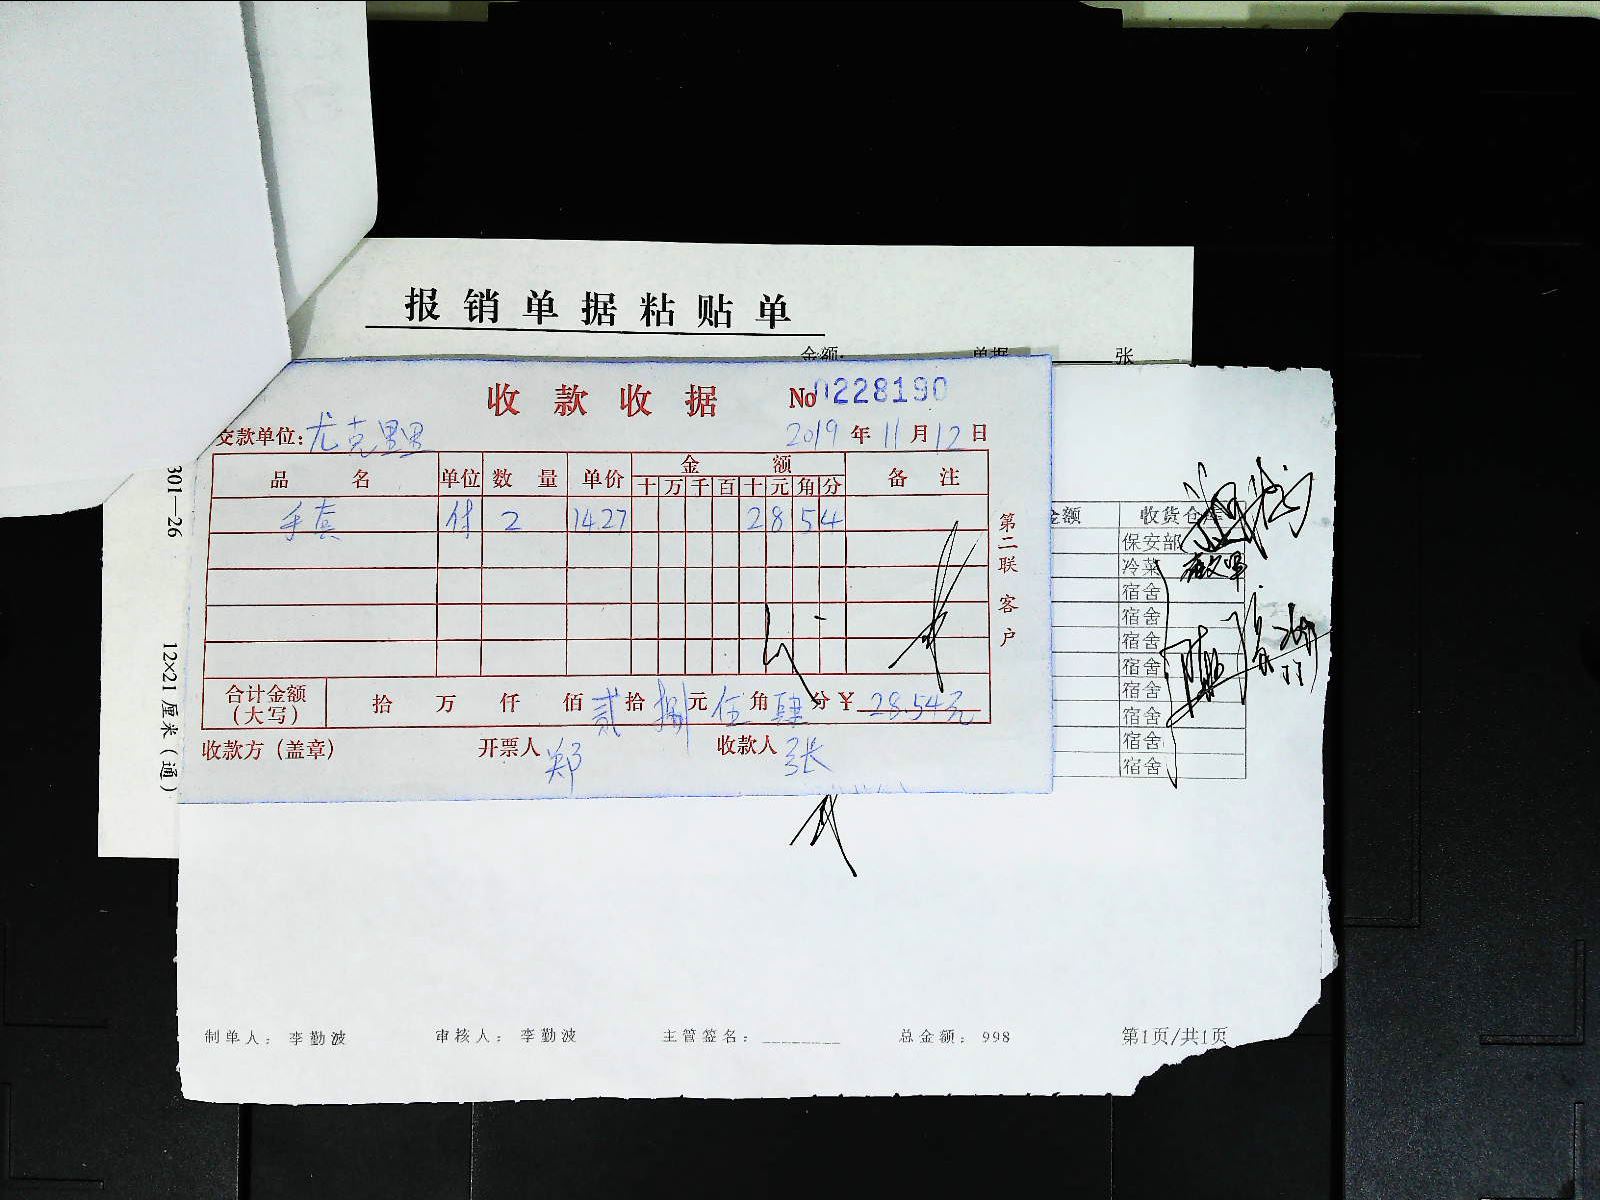 报销单据粘贴单
金额: 单据 张
收款收据 No 0228190
交款单位: 尤克里里 2019 年 11 月 12 日
品名 单位 数量 单价 金额 备注
十 万 千 百 十 元 角 分
手套 付 2 14.27 2 8 5 4
合计金额(大写) 拾 万 仟 佰 贰 拾 捌 元 伍 角 肆 分 ¥ 28.54元
收款方(盖章) 开票人 郑 收款人 张
第二联 客户
金额 收货仓库
保安部
冷菜
宿舍
宿舍
宿舍
宿舍
宿舍
宿舍
宿舍
宿舍
301—26 12×21厘米(通)
制单人: 李勤波 审核人: 李勤波 主管签名: ________ 总金额: 998 第1页/共1页